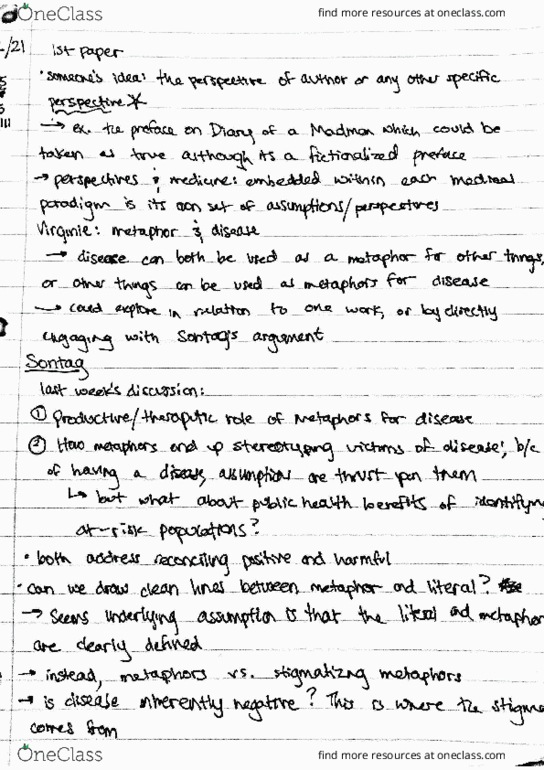 OneClass
find more resources at oneclass.com
/21
1st paper
• someone's idea: the perspective of author or any other specific
perspective *
→ ex. the preface on Diary of a Madman which could be
taken as true although its a fictionalized preface
→ perspectives & medicine: embedded within each medical
paradigm is its own set of assumptions/perspectives
Virginie: metaphor & disease
→ disease can both be used as a metaphor for other things,
or other things can be used as metaphors for disease
→ could explore in relation to one work, or by directly
engaging with Sontag's argument
Sontag
last week's discussion:
① Productive/therapeutic role of metaphors for disease
② How metaphors end up stereotyping victims of disease; b/c
of having a disease, assumptions are thrust upon them
↳ but what about public health benefits of identifying
at-risk populations?
• both address reconciling positive and harmful
• can we draw clean lines between metaphor and literal?
→ seems underlying assumption is that the literal and metaphor
are clearly defined
→ instead, metaphors vs. stigmatizing metaphors
→ is disease inherently negative? This is where the stigma
comes from
OneClass
find more resources at oneclass.com